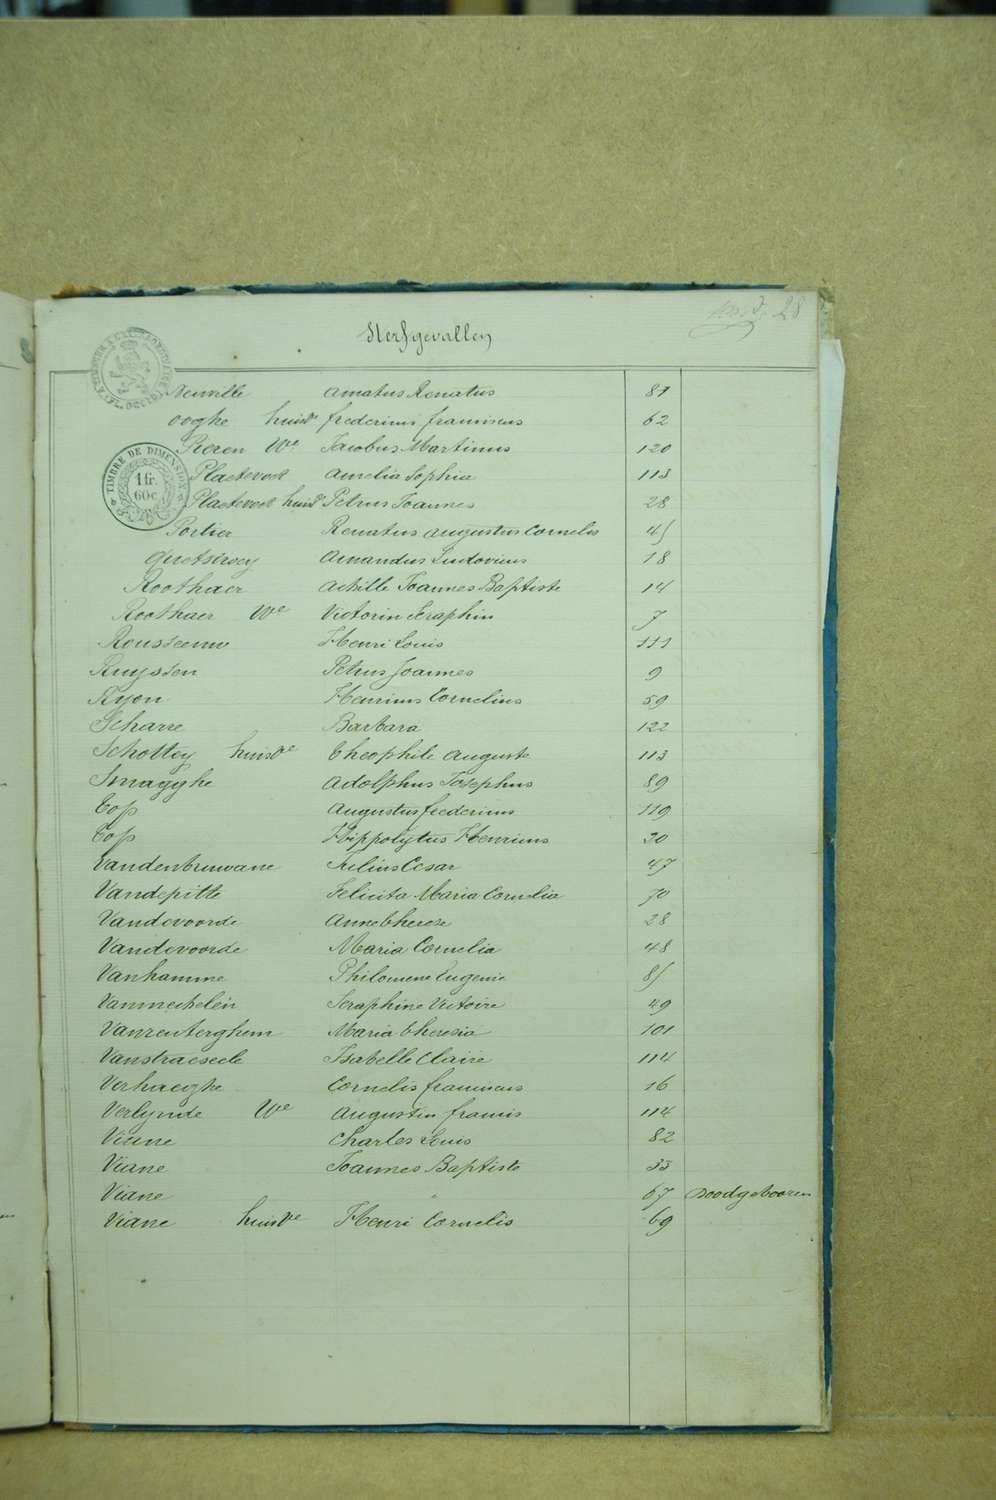 28
Sterfgevallen
TIMBRE DE DIMENSION
1 fr.
60 c.
Neuville Amatus Renatus 87
Ooghe huisve fredericus franciscus 62
Pieren We Jacobus Martinus 120
Plaetevoet Aurelia Sophia 113
Plaetevoet huisve Petrus Joannes 28
Portier Renatus Augustus Cornelis 45
Quetstroey Amandus Ludovicus 18
Roothaer Achille Joannes Baptiste 14
Roothaer We Victorin Seraphin 7
Rousseeuw Henri Louis 111
Ruyssen Petrus Joannes 9
Ryon Henricus Cornelius 59
Scharre Barbara 122
Schottey huisve Theophile Auguste 113
Smagghe Adolphus Josephus 89
Top Augustus fredericus 119
Top Hippolytus Henricus 30
Vandenbruwane Julius Cesar 47
Vandepitte Felicita Maria Cornelia 70
Vandevoorde Anne Therese 28
Vandevoorde Maria Cornelia 48
Vanhamme Philomene Eugenie 85
Vanmechelen Seraphine Victoire 49
Vanrenterghem Maria Theresia 101
Vanstraeseele Isabelle Claire 114
Verhaeghe Cornelis franciscus 16
Verlynde We Augustin francis 114
Viane Charles Louis 82
Viane Joannes Baptiste 33
Viane " 67 Doodgebooren
Viane huisve Henri Cornelis 69